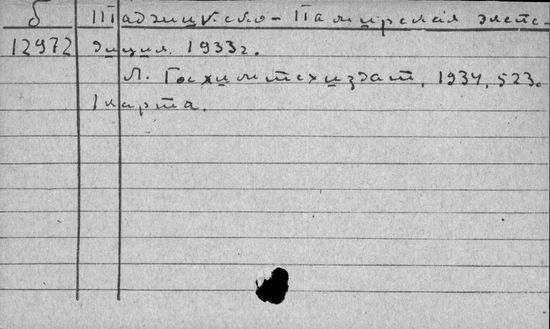 б Таджикско-Памирская экспе-
12972 диция 1933г.
Л. Госхимтехиздат, 1934, 523с
1 карта.